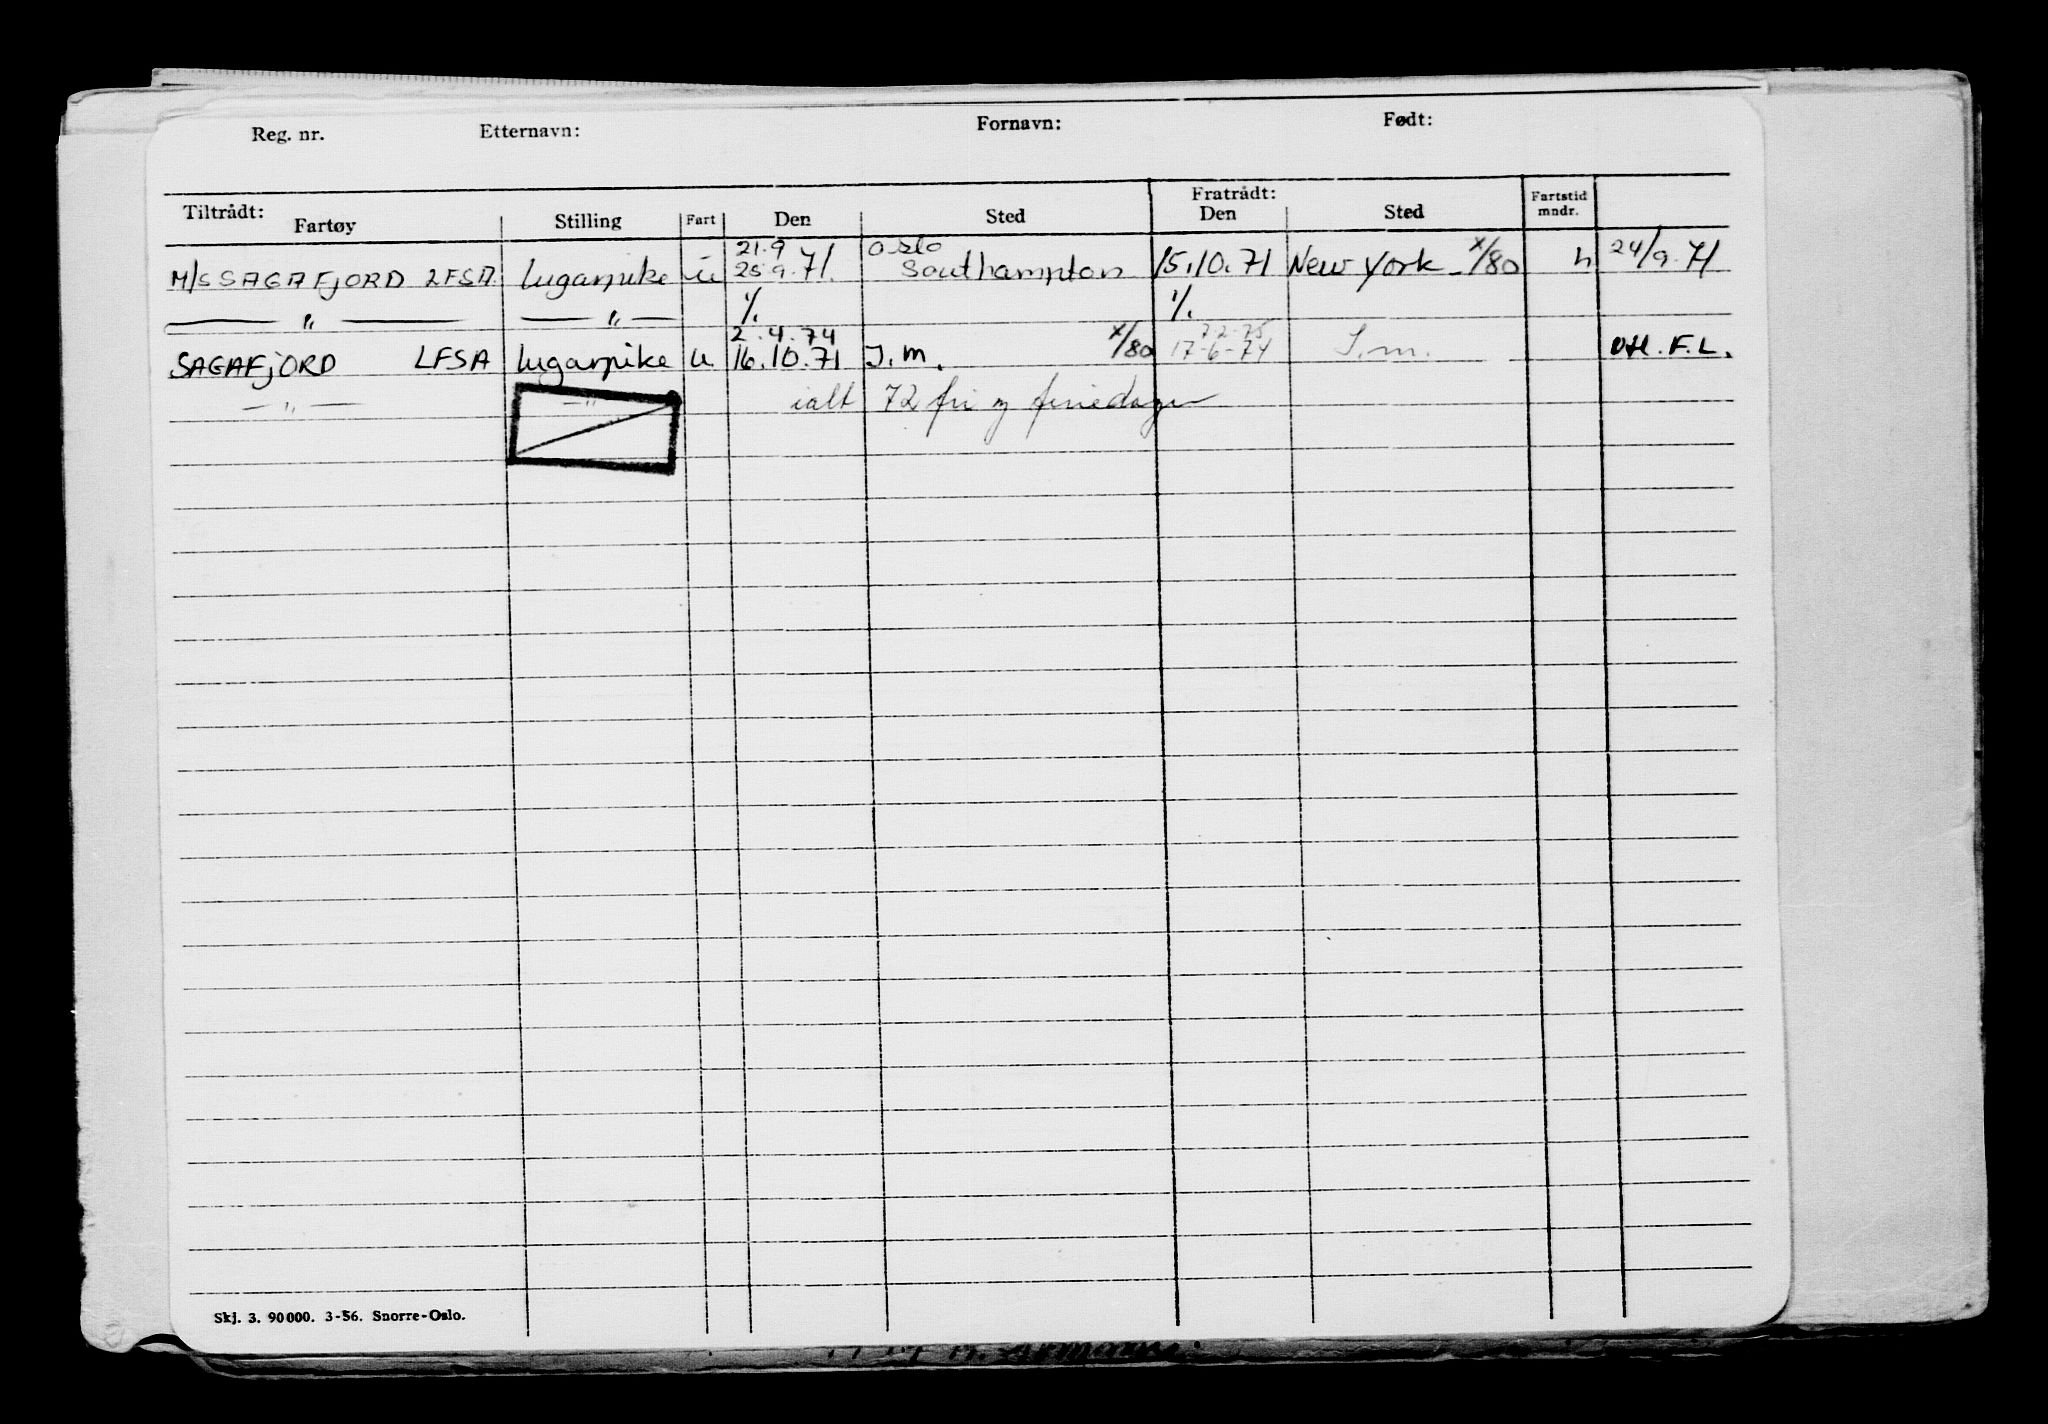 Reg. nr. Etternavn: Fornavn: Født:
Tiltrådt: Fratrådt:
Fartøy Stilling Fart Den Sted Den Sted Fartstid mndr.
21.9 Oslo
M/S SAGAFJORD LFSA. lugarpike u 25.9.71. Southampton 15.10.71 New York x/80 h 24/9.71
— " — — " — 1/. 1/.
2.4.74 7-2-75
SAGAFJORD LFSA lugarpike u. 16.10.71 J.m. x/80 17-6-74 J.m. OH. F.L.
— " — — " — ialt 72 fri og feriedager
Skj. 3. 90000. 3-56. Snorre-Oslo.